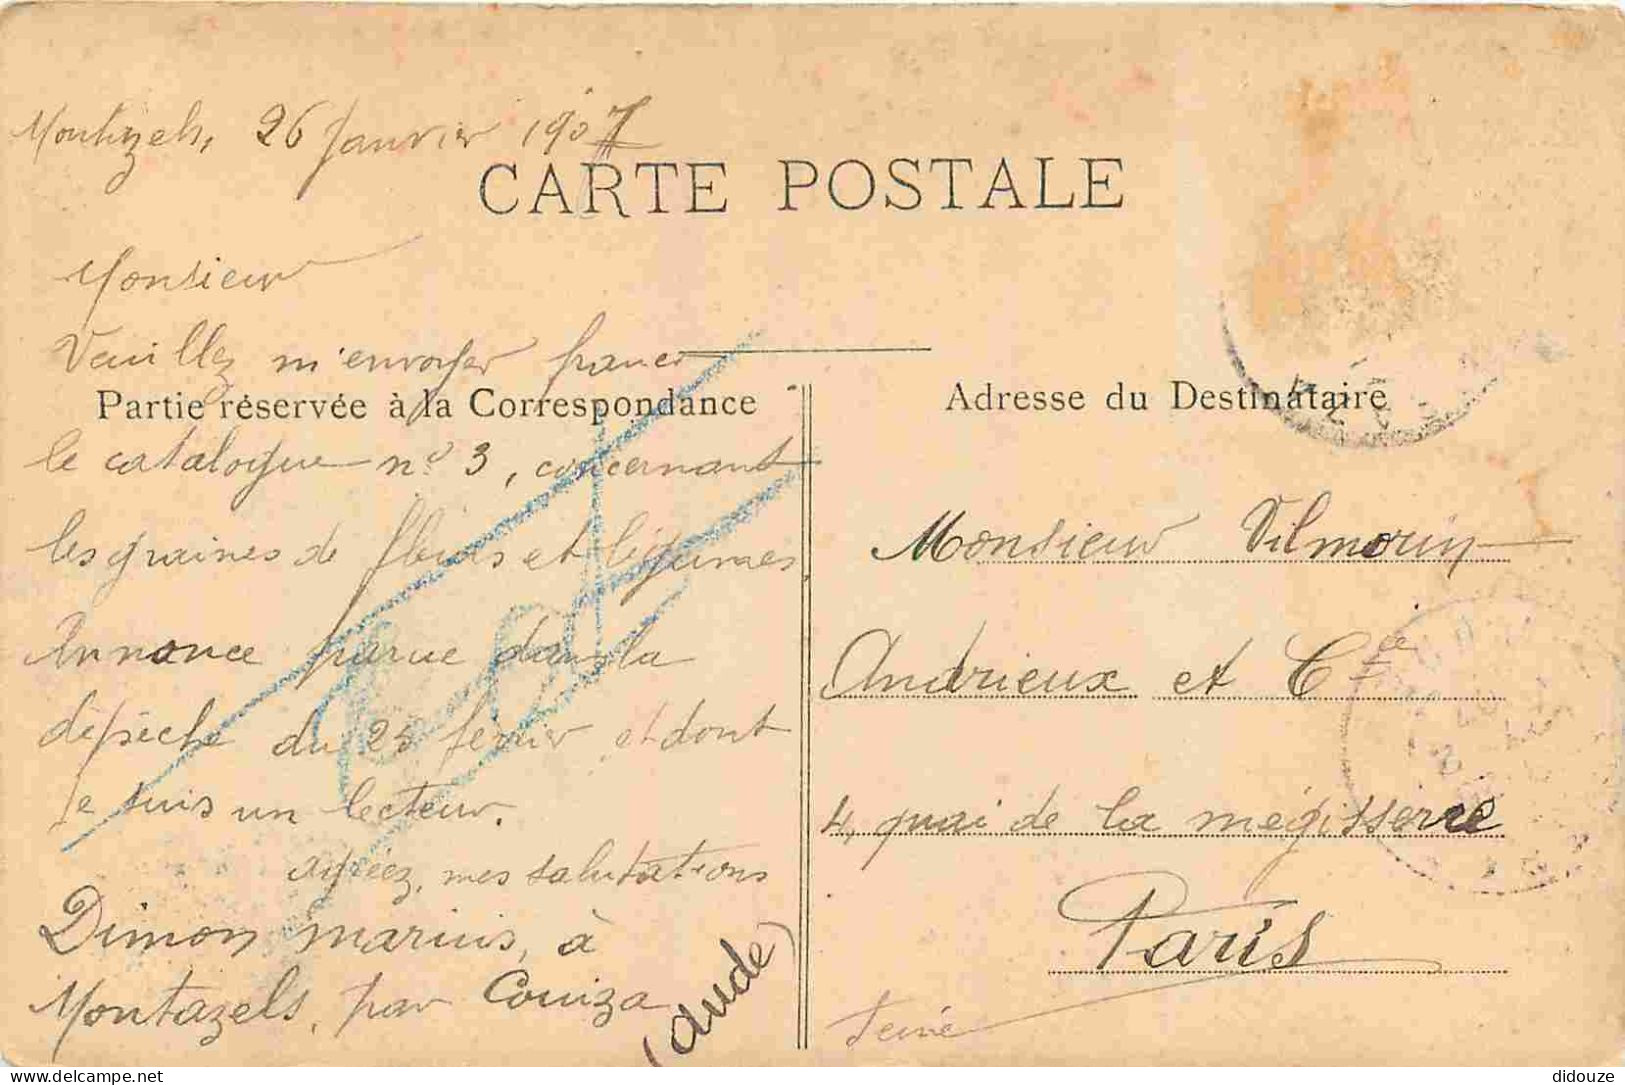 Montazels, 26 Janvier 1907
CARTE POSTALE
Monsieur
Veuillez m'envoyer franco
Partie réservée à la Correspondance
le catalogue n° 3, concernant
les graines de fleurs et légumes,
Annonce parue dans la
dépêche du 25 fevrier et dont
Je suis un lecteur.
Agréez, mes salutations
Dimon marius, à
Montazels, par Couiza
(Aude)
Adresse du Destinataire
Monsieur Vilmorin
Andrieux et Cie
4, quai de la mégisserie
Paris
Seine
didouze